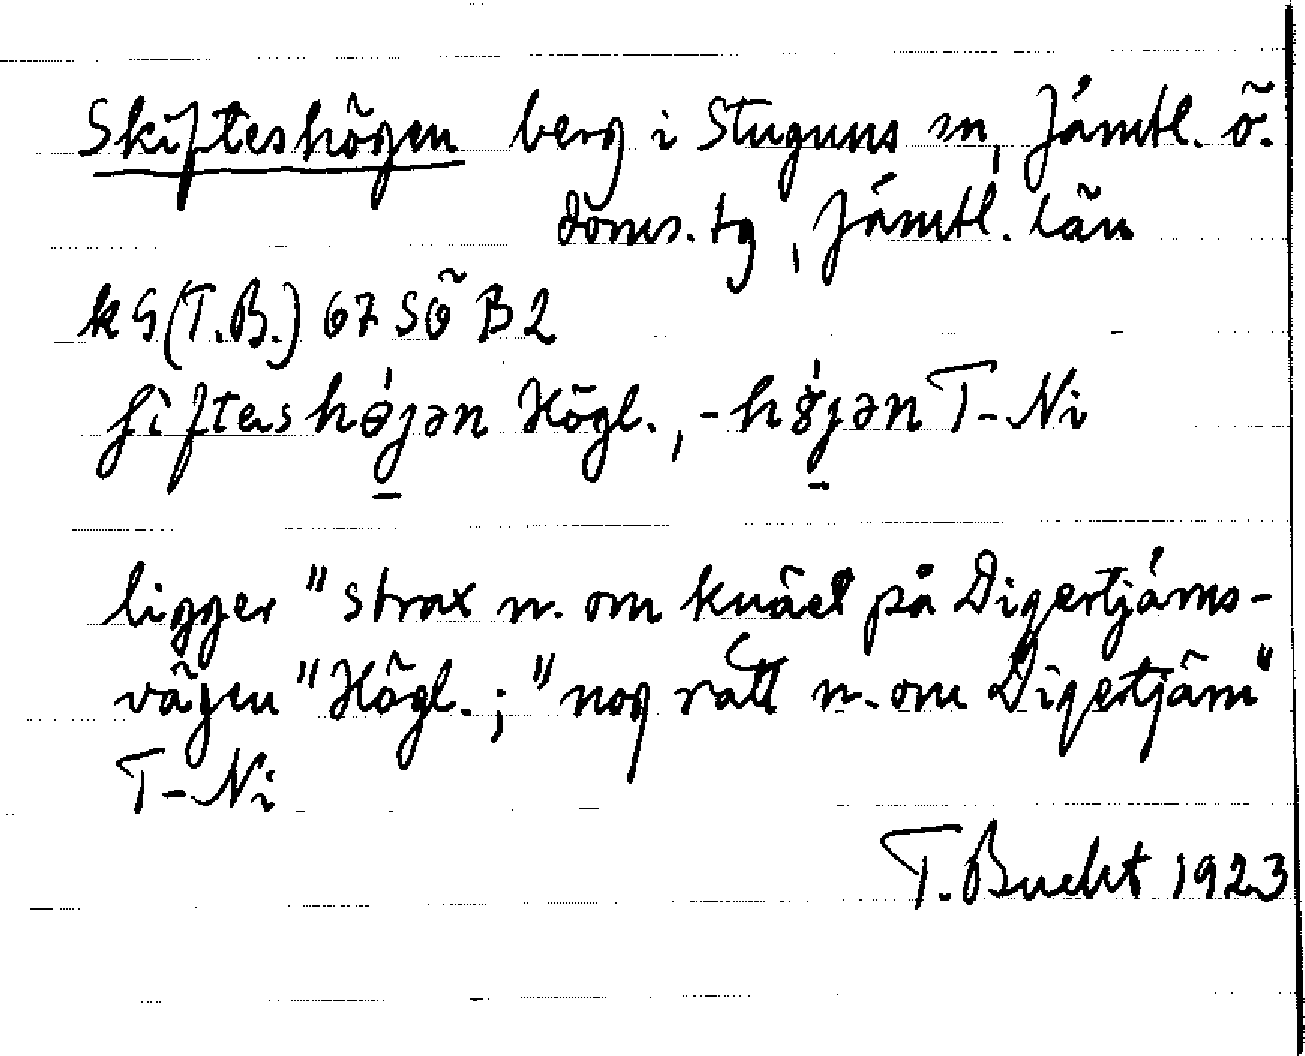 Skifteshögen berg i Stuguns sn, Jämtl. ö.
doms. tg, Jämtl. län
k G (T.B.) 67 SÖ B 2
ʃìftəshǿjən Högl., -hø̀jən T-Ni
ligger "strax n. om knäet på Digertjärns-
vägen" Högl.; "nog rätt n. om Digertjärn"
T-Ni
T. Bucht 1923